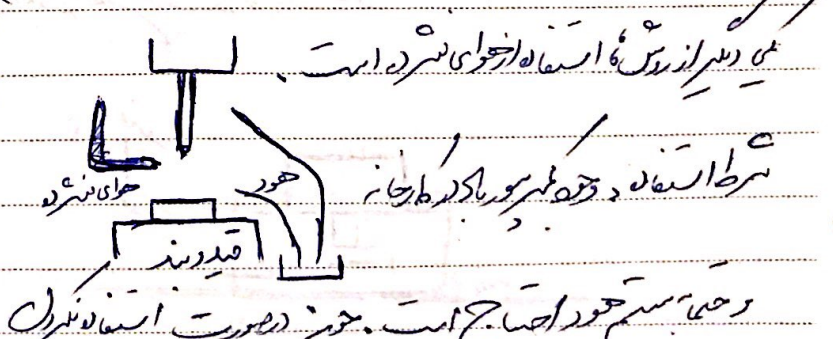 یکی دیگر از روش‌ها استفاده از هوای فشرده است.
هوای فشرده
هود
شرط استفاده وجود کمپرسور باد در کارخانه
قید و بند
و حتماً به سیستم هود احتیاج است. چون در صورت استفاده نکردن